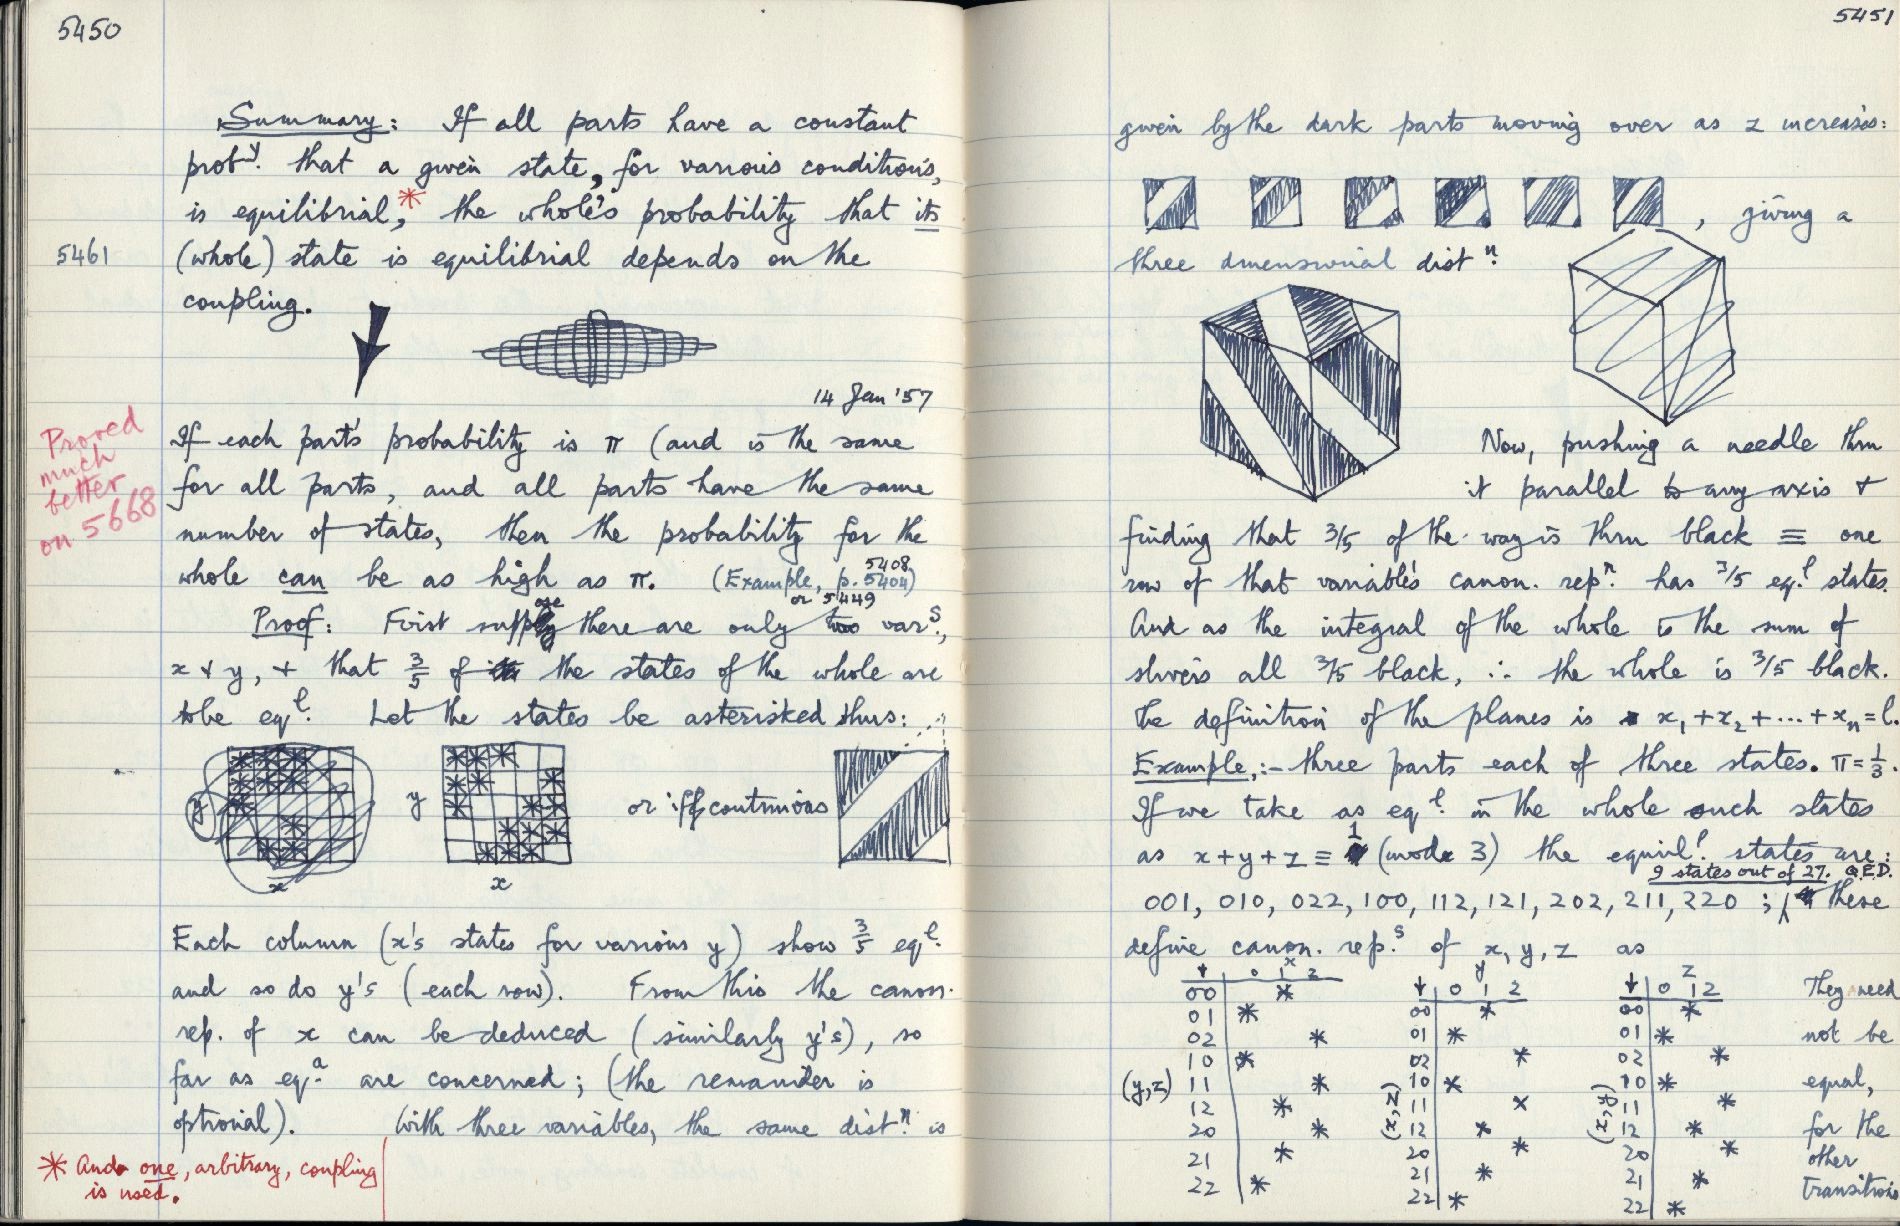 5450
Summary: If all parts have a constant
proby. that a given state, for various conditions,
is equilibrial,* the whole's probability that its
5461
(whole) state is equilibrial depends on the
coupling.
14 Jan '57
Proved
much
better
on 5668
If each part's probability is π (and is the same
for all parts, and all parts have the same
number of states, then the probability for the
whole can be as high as π. (Example, p. 5404)
5408
or 5449
Proof: First suppose there are only two vars.,
x + y, + that 3/5 of the states of the whole are
to be eql. Let the states be asterisked thus:
y
x
y
x
or if continuous
Each column (x's states for various y) show 3/5 eql.
and so do y's (each row). From this the canon.
rep. of x can be deduced (similarly y's), so
far as eqa. are concerned; (the remainder is
optional). With three variables, the same distn. is
* And one, arbitrary, coupling
is used.
5451
given by the dark parts moving over as z increases:
, giving a
three dimensional distn.
Now, pushing a needle thru
it parallel to any axis +
finding that 3/5 of the way is thru black ≡ one
row of that variable's canon. repn. has 3/5 eql. states.
And as the integral of the whole is the sum of
slivers all 3/5 black, ∴ the whole is 3/5 black.
The definition of the planes is x₁ + x₂ + ... + xₙ = l.
Example,:- three parts each of three states. π = 1/3.
If we take as eql. in the whole such states
as x + y + z ≡ 1 (mod 3) the equil. states are:
9 states out of 27. Q.E.D.
001, 010, 022, 100, 112, 121, 202, 211, 220 ; these
define canon. rep.s of x, y, z as
x
↓ 0 1 2
00 *
01 *
02 *
10 *
(y,z) 11 *
12 *
20 *
21 *
22 *
y
↓ 0 1 2
00 *
01 *
02 *
10 *
(x,z) 11 *
12 *
20 *
21 *
22 *
z
↓ 0 1 2
00 *
01 *
02 *
10 *
(x,y) 11 *
12 *
20 *
21 *
22 *
They need
not be
equal,
for the
other
transitions